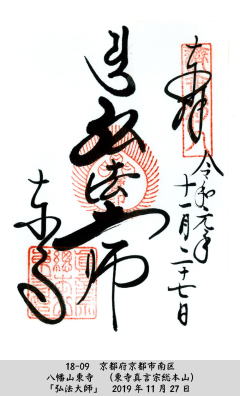 奉拝
令和元年
十一月二十七日
弘法大師
東寺
18-09　京都府京都市南区
八幡山東寺　（東寺真言宗総本山）
「弘法大師」　2019年11月27日